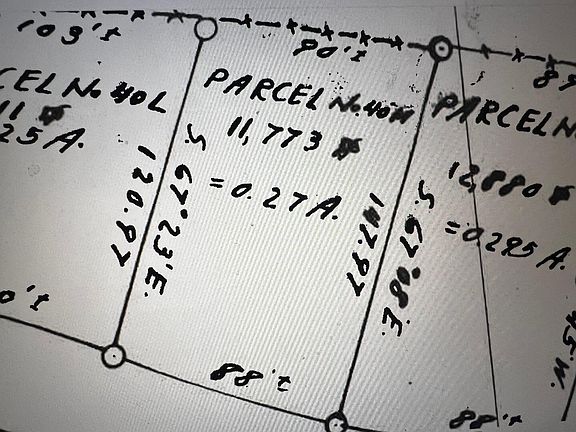 103'±
90'±
CEL No. 40L
11
25 A.
PARCEL No. 40M
11,773
= 0.27 A.
PARCEL N
12,880
= 0.295 A.
120.97
S. 67° 23' E.
147.97
S. 67° 08' E.
0'±
88'±
88'±